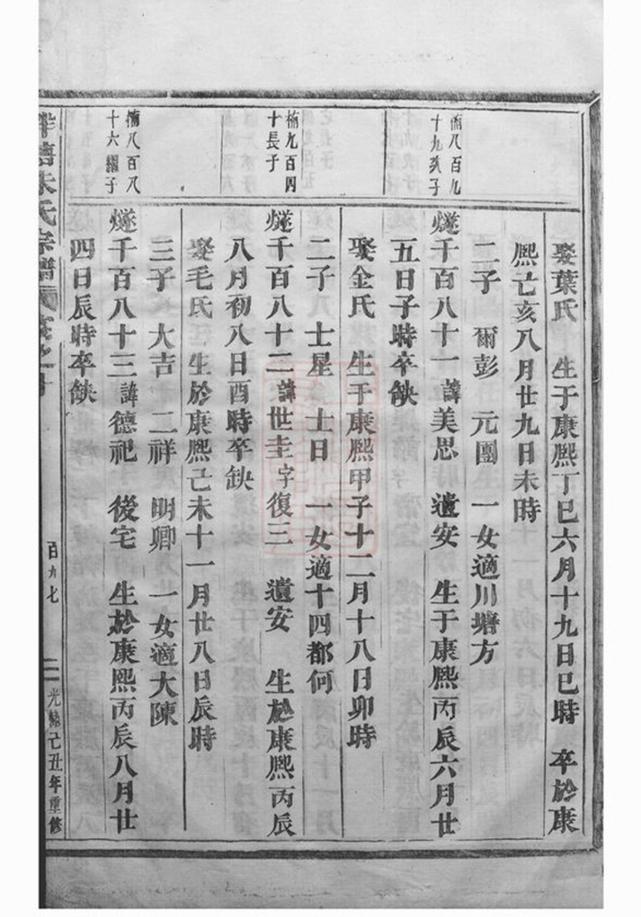 娶葉氏 生于康熙丁巳六月十九日巳時 卒於康
熙己亥八月廿九日未時
二子 爾彭 元團 一女適川塘方
備八百九
十九次子
燧千百八十一 諱美思 遺安 生于康熙丙辰六月廿
五日子時卒缺
娶金氏 生于康熙甲子十二月十八日卯時
二子 士星 士日 一女適十四都何
備九百四
十長子
燧千百八十二 諱世圭字復三 遺安 生於康熙丙辰
八月初八日酉時卒缺
娶毛氏 生於康熙己未十一月廿八日辰時
三子 大吉 二祥 明卿 一女適大陳
備八百八
十六繼子
燧千百八十三 諱德祀 後宅 生於康熙丙辰八月廿
四日辰時卒缺
朱氏宗譜
百九七
光緒己丑年重修